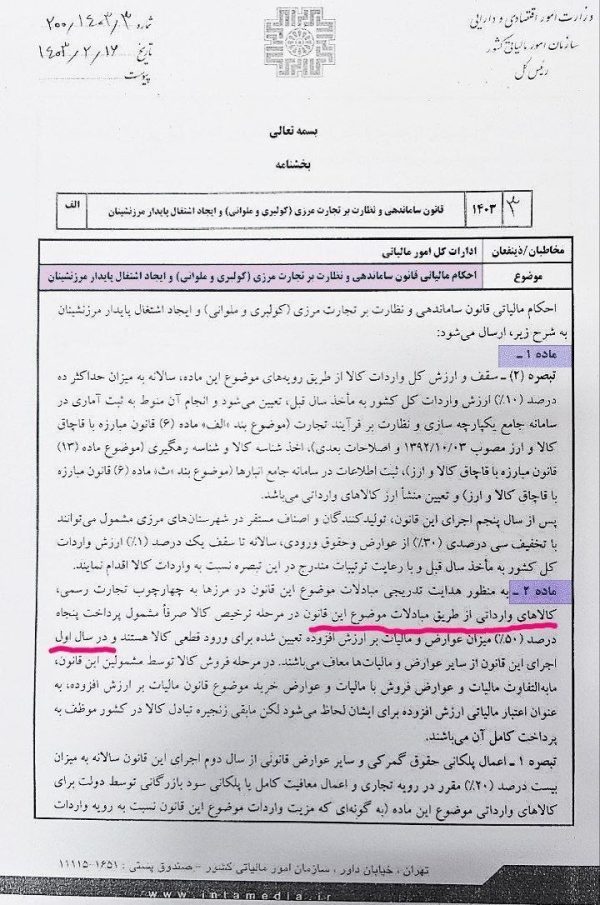 وزارت امور اقتصادی و دارایی
سازمان امور مالیاتی کشور
رئیس کل
شماره ۲۰۰/۱۴۰۳/۳
تاریخ ۱۴۰۳/۲/۱۶
پیوست
بسمه تعالی
بخشنامه
۳ ۱۴۰۳ قانون ساماندهی و نظارت بر تجارت مرزی (کولبری و ملوانی) و ایجاد اشتغال پایدار مرزنشینان الف
مخاطبان/ذینفعان ادارات کل امور مالیاتی
موضوع احکام مالیاتی قانون ساماندهی و نظارت بر تجارت مرزی (کولبری و ملوانی) و ایجاد اشتغال پایدار مرزنشینان
احکام مالیاتی قانون ساماندهی و نظارت بر تجارت مرزی (کولبری و ملوانی) و ایجاد اشتغال پایدار مرزنشینان
به شرح زیر، ارسال می‌شود:
ماده ۱ـ
تبصره (۲) ـ سقف و ارزش کل واردات کالا از طریق رویه‌های موضوع این ماده، سالانه به میزان حداکثر ده
درصد (۱۰٪) ارزش واردات کل کشور به مأخذ سال قبل، تعیین می‌شود و انجام آن منوط به ثبت آماری در
سامانه جامع یکپارچه سازی و نظارت بر فرآیند تجارت (موضوع بند «الف» ماده (۶) قانون مبارزه با قاچاق
کالا و ارز مصوب ۱۳۹۲/۱۰/۰۳ و اصلاحات بعدی)، اخذ شناسه کالا و شناسه رهگیری (موضوع ماده (۱۳)
قانون مبارزه با قاچاق کالا و ارز)، ثبت اطلاعات در سامانه جامع انبارها (موضوع بند «ث» ماده (۶) قانون مبارزه
با قاچاق کالا و ارز) و تعیین منشأ ارز کالاهای وارداتی می‌باشد.
پس از سال پنجم اجرای این قانون، تولیدکنندگان و اصناف مستقر در شهرستان‌های مرزی مشمول می‌توانند
با تخفیف سی درصدی (۳۰٪) از عوارض وحقوق ورودی، سالانه تا سقف یک درصد (۱٪) ارزش واردات
کل کشور به مأخذ سال قبل و با رعایت ترتیبات مندرج در این تبصره نسبت به واردات کالا اقدام نمایند.
ماده ۲ـ به منظور هدایت تدریجی مبادلات موضوع این قانون در مرزها به چهارچوب تجارت رسمی،
کالاهای وارداتی از طریق مبادلات موضوع این قانون در مرحله ترخیص کالا صرفاً مشمول پرداخت پنجاه
درصد (۵۰٪) میزان عوارض و مالیات بر ارزش افزوده تعیین شده برای ورود قطعی کالا هستند و در سال اول
اجرای این قانون از سایر عوارض و مالیات‌ها معاف می‌باشند. در مرحله فروش کالا توسط مشمولین این قانون،
مابه‌التفاوت مالیات و عوارض فروش با مالیات و عوارض خرید موضوع قانون مالیات بر ارزش افزوده، به
عنوان اعتبار مالیاتی ارزش افزوده برای ایشان لحاظ می‌شود لکن مابقی زنجیره تبادل کالا در کشور موظف به
پرداخت کامل آن می‌باشند.
تبصره ۱ ـ اعمال پلکانی حقوق گمرکی و سایر عوارض قانونی از سال دوم اجرای این قانون سالانه به میزان
بیست درصد (۲۰٪) مقرر در رویه تجاری و اعمال معافیت کامل یا پلکانی سود بازرگانی توسط دولت برای
کالاهای وارداتی موضوع این ماده (به گونه‌ای که مزیت واردات موضوع این قانون نسبت به رویه واردات
تهران، خیابان داور، سازمان امور مالیاتی کشور - صندوق پستی: ۱۶۵۱-۱۱۱۱۵
www.intamedia.ir